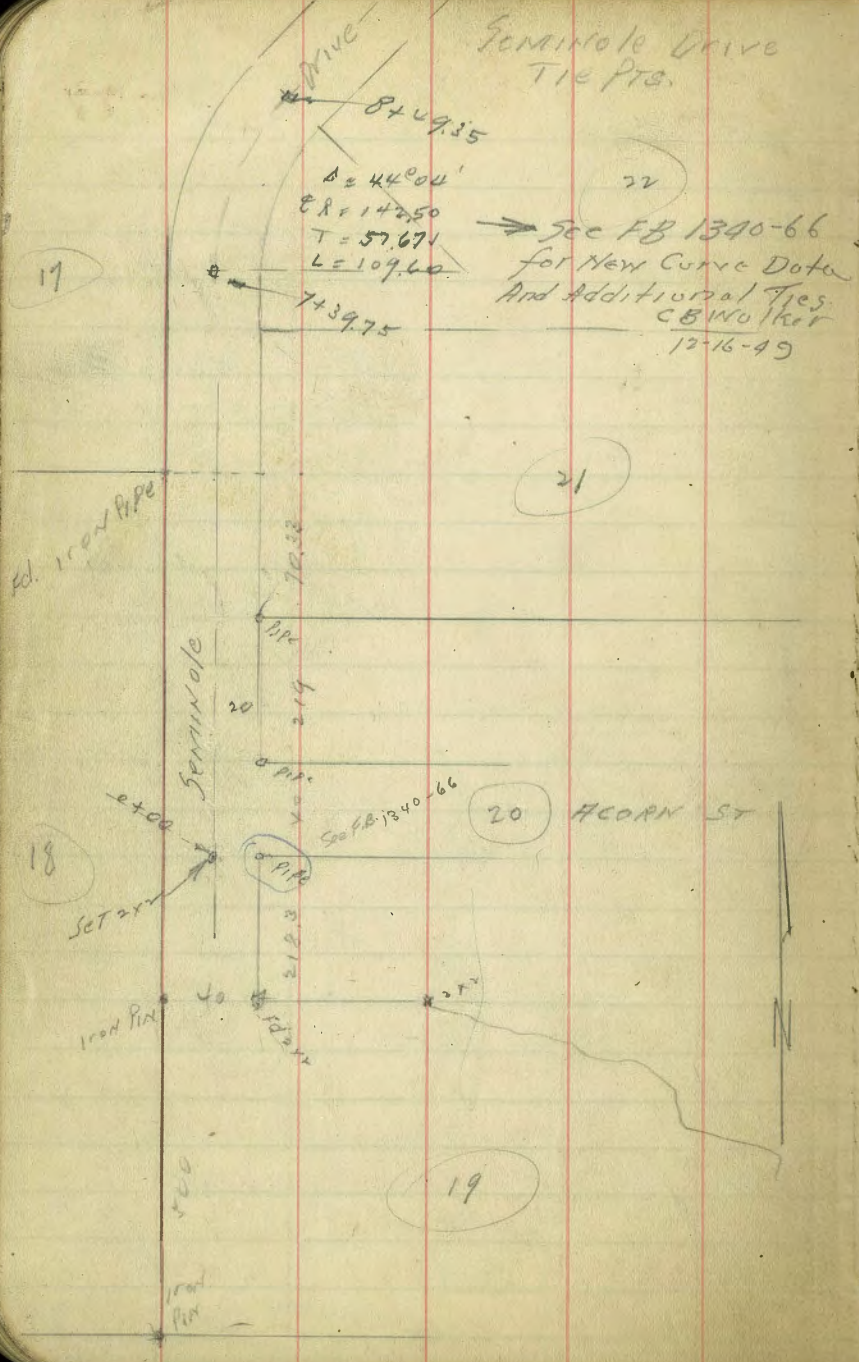 Seminole Drive
Tie Pts.
Drive
8+49.35
Δ = 44°04'
¢ R = 142.50
T = 57.671
L = 109.60
22
→ See FB 1340-66
for New Curve Data
And Additional Ties
CB Walker
12-16-49
17
7+39.75
21
Fd. Iron Pipe
70.33
Pipe
Seminole
20
219
Pipe
40
See F.B. 1340-66
20 ACORN ST
0+00
18
Pipe
Set 2x2
218.3
Iron Pin
40
Fd 2x2
2x2
N
500
19
Iron
Pin